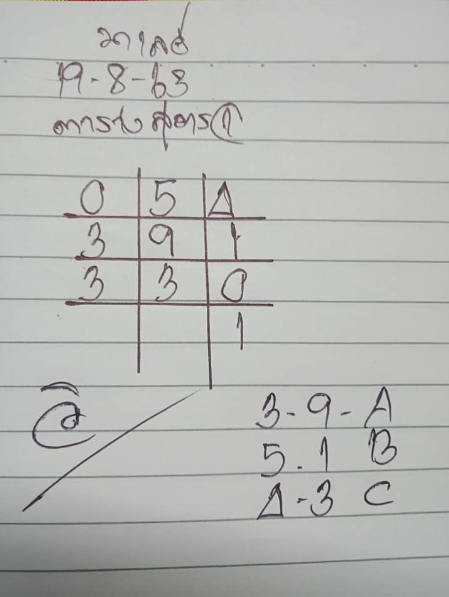 มาเลย์
19-8-63
ตารางสูตร①
0 5 Δ
3 9 1
3 3 0
1
3-9-A
5.1 B
Δ-3 C